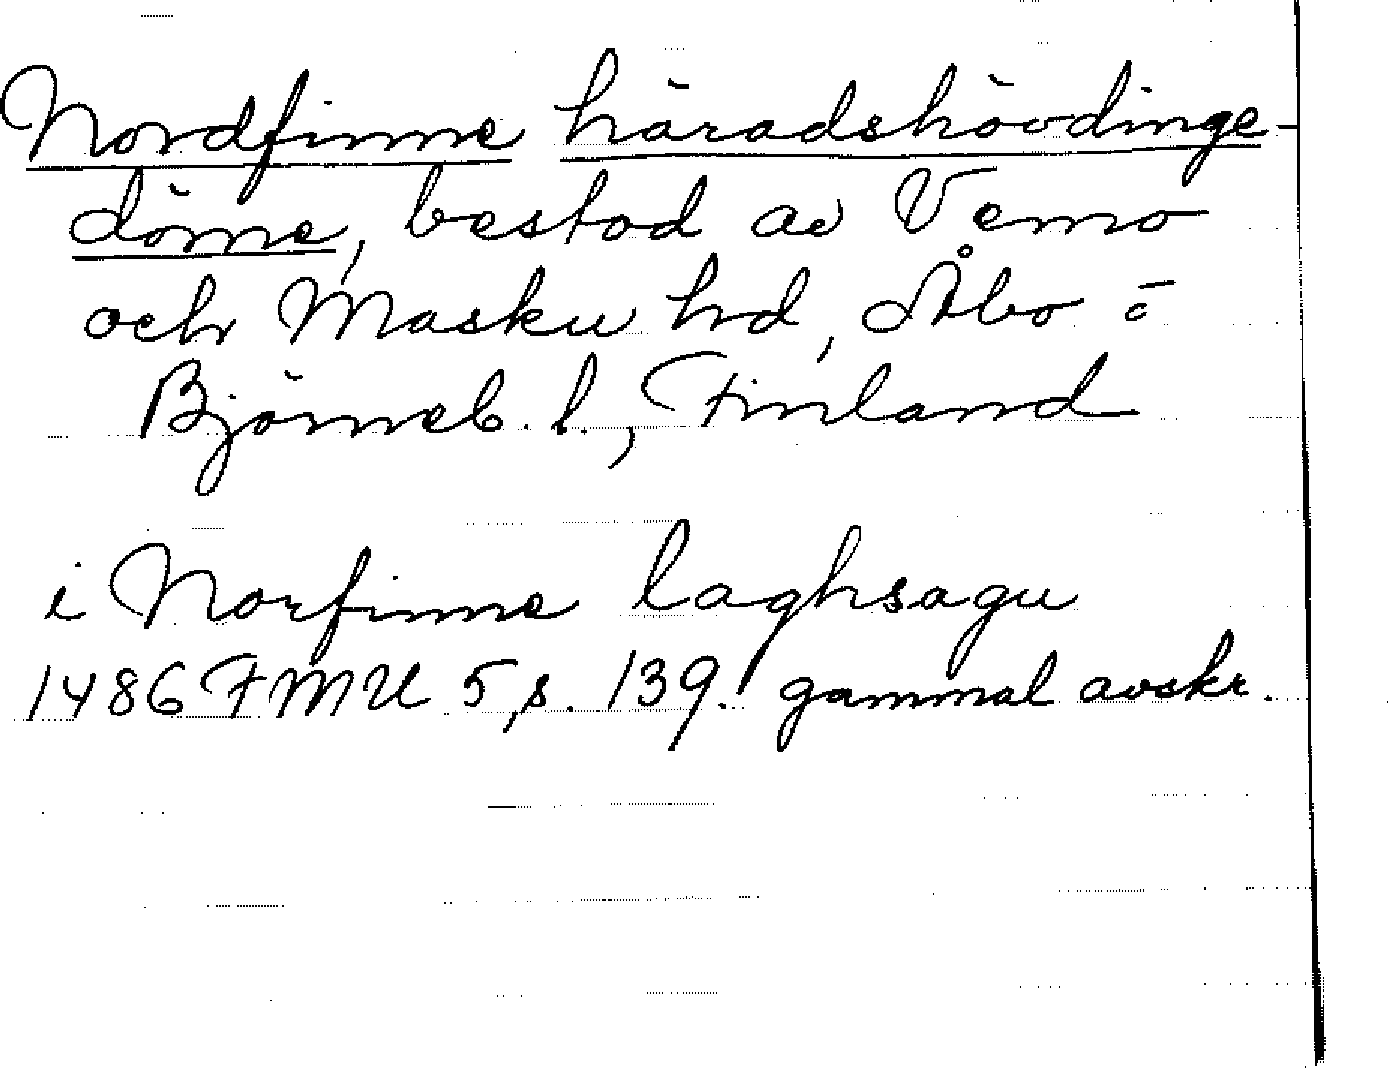 Nordfinne häradshövdinge-
döme, bestod av Vemo
och Masku hd, Åbo o
Björneb. l., Finland
i Norfinne laghsagu
1486 FMU 5, s. 139. gammal avskr.